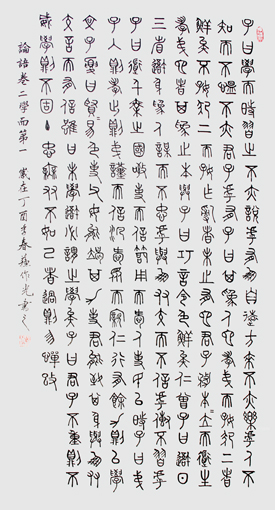 子曰學而時習之不亦說乎有朋自遠方來不亦樂乎人不
知而不慍不亦君子乎有子曰其爲人也孝弟而好犯上者
鮮矣不好犯上而好作亂者未之有也君子務本本立而道生
孝弟也者其爲仁之本與子曰巧言令色鮮矣仁曾子曰吾日
三省吾身爲人謀而不忠乎與朋友交而不信乎傳不習乎
子曰道千乘之國敬事而信節用而愛人使民以時子曰弟
子入則孝出則弟謹而信汎愛衆而親仁行有餘力則以學
文子夏曰賢賢易色事父母能竭其力事君能致其身與朋
友交言而有信雖曰未學吾必謂之學矣子曰君子不重則不
威學則不固主忠信無友不如己者過則勿憚改
論語卷二學而第一 歲在丁酉春